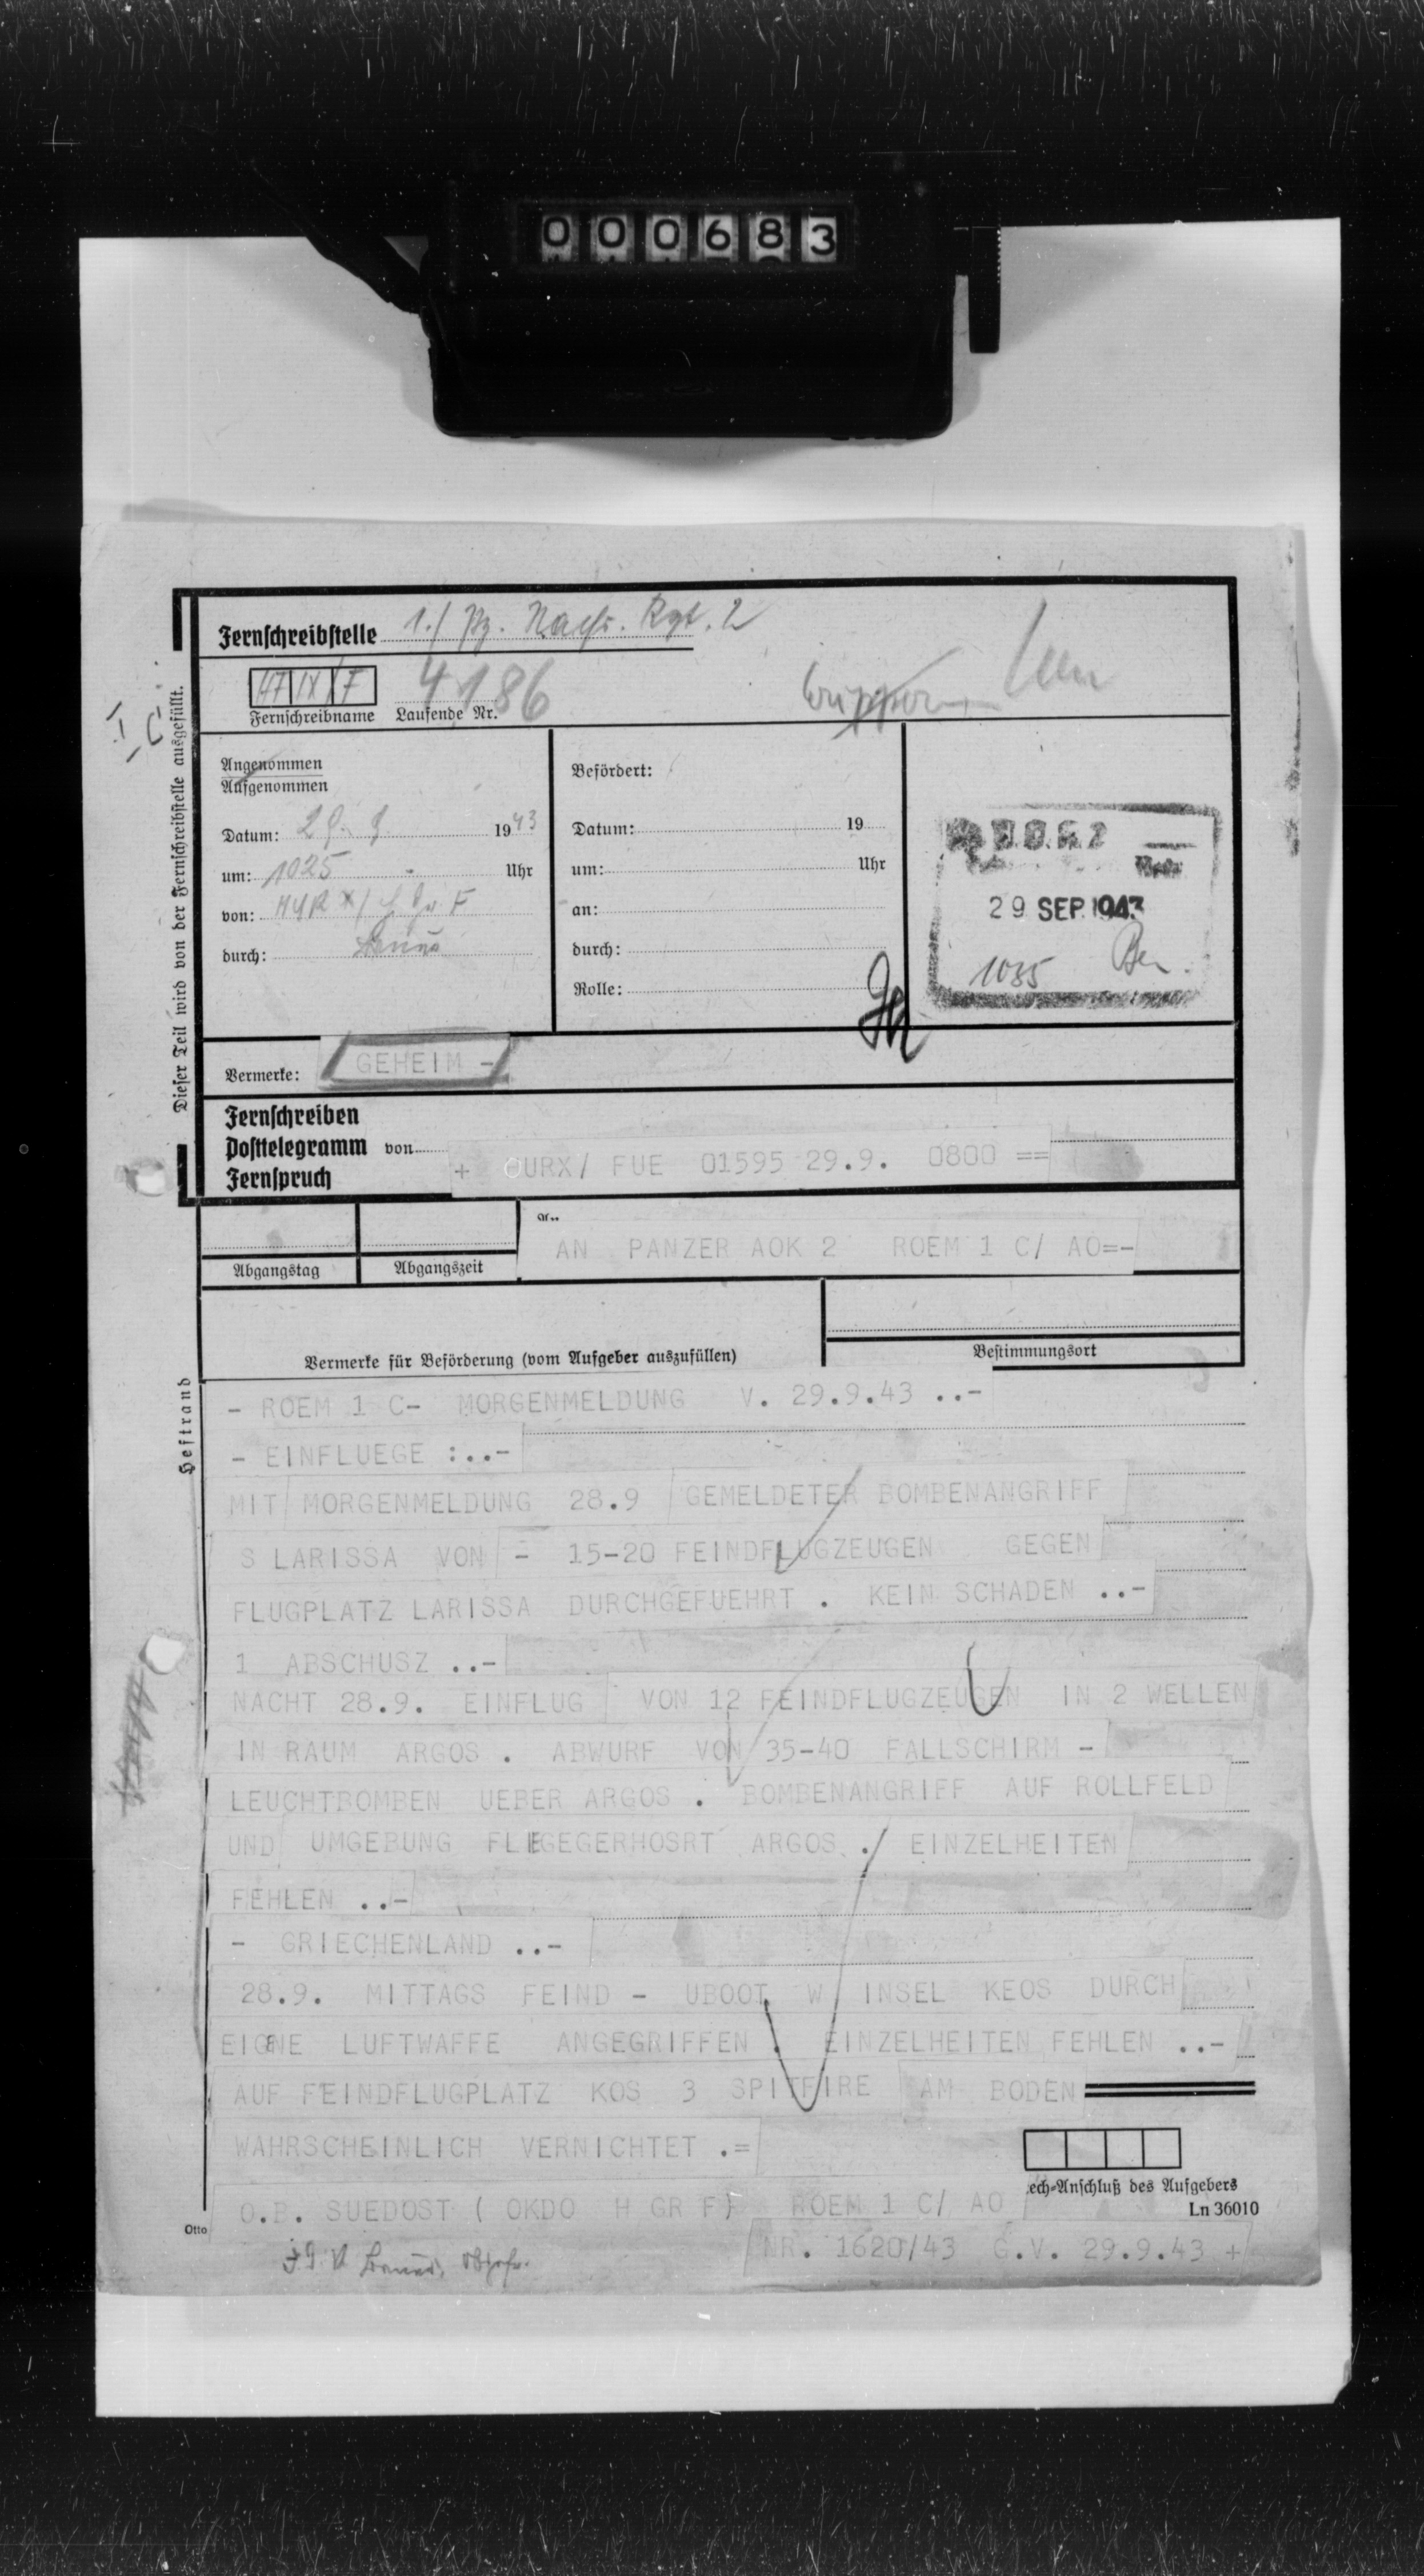 000683
Fernschreibstelle 1./ Pz. Nachr. Rgt. 2
HF IX F 4186
Fernschreibname Laufende Nr.
I c
Dieser Teil wird von der Fernschreibstelle ausgefüllt.
Angenommen
Aufgenommen
Datum: 29. 9. 1943
um: 1025 Uhr
von:
durch:
Befördert:
Datum: 19
um: Uhr
an:
durch:
Rolle:
29 SEP. 1943
1035
Vermerke: GEHEIM -
Fernschreiben
Posttelegramm von + OURX/ FUE 01595 29.9. 0800 ==
Fernspruch
AN PANZER AOK 2 ROEM 1 C/ AO=-
Abgangstag Abgangszeit
Vermerke für Beförderung (vom Aufgeber auszufüllen) Bestimmungsort
Heftrand
- ROEM 1 C- MORGENMELDUNG V. 29.9.43 ..-
- EINFLUEGE :..-
MIT MORGENMELDUNG 28.9 GEMELDETER BOMBENANGRIFF
S LARISSA VON - 15-20 FEINDFLUGZEUGEN GEGEN
FLUGPLATZ LARISSA DURCHGEFUEHRT . KEIN SCHADEN ..-
1 ABSCHUSZ ..-
NACHT 28.9. EINFLUG VON 12 FEINDFLUGZEUGEN IN 2 WELLEN
IN RAUM ARGOS . ABWURF VON 35-40 FALLSCHIRM -
LEUCHTBOMBEN UEBER ARGOS . BOMBENANGRIFF AUF ROLLFELD
UND UMGEBUNG FLIEGEGERHOSRT ARGOS . EINZELHEITEN
FEHLEN ..-
- GRIECHENLAND ..-
28.9. MITTAGS FEIND - UBOOT W INSEL KEOS DURCH
EIGENE LUFTWAFFE ANGEGRIFFEN . EINZELHEITEN FEHLEN ..-
AUF FEINDFLUGPLATZ KOS 3 SPITFIRE AM BODEN
WAHRSCHEINLICH VERNICHTET .=
ech-Anschluß des Aufgebers
O.B. SUEDOST ( OKDO H GR F) ROEM 1 C/ AO
Ln 36010
Otto
NR. 1620/43 G.V. 29.9.43 +